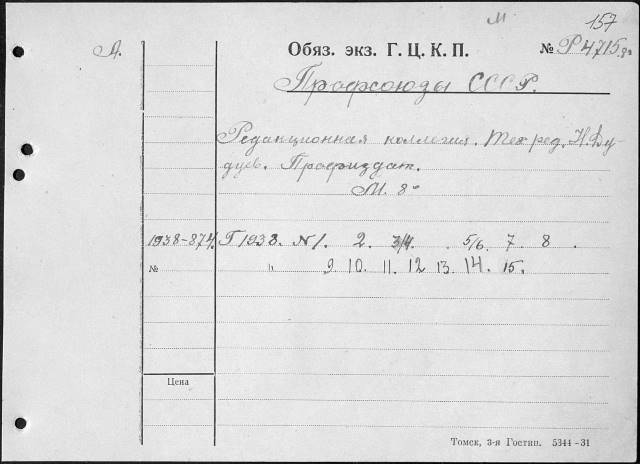 М
157
А.
Обяз. экз. Г. Ц. К. П.
№ Р4715.
Профсоюзы СССР.
Редакционная коллегия. Тех ред. Н. Ду-
дцев. Профиздат.
М. 8°
1938-874. Г 1938. N1. 2. 3/4. 5/6. 7. 8.
№ " 9. 10. 11. 12 13. 14. 15.
Цена
Томск, 3-я Гостип. 5344-31